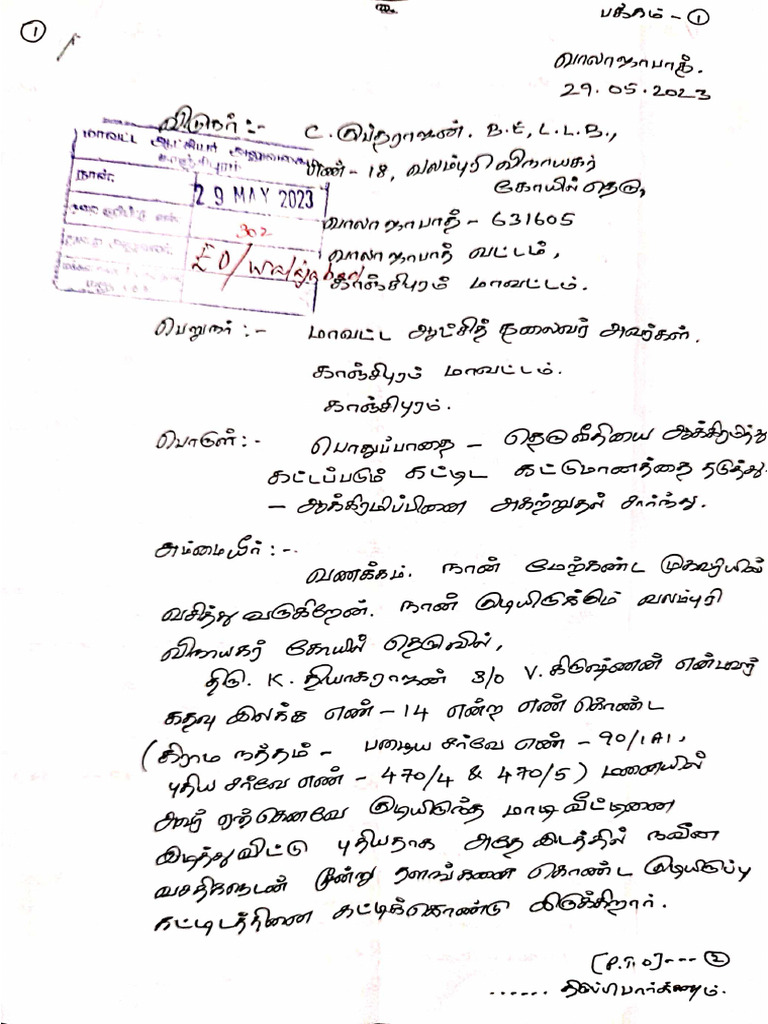 பக்கம் - ①
①
வாலாஜாபாத்.
29.05.2023
விடுநர் :- C. குபேதராஜன். B.E, L.L.B.,
எண் - 18, வலம்புரி விநாயகர்
கோயில் தெரு,
வாலாஜாபாத் - 631605
வாலாஜாபாத் வட்டம்,
காஞ்சிபுரம் மாவட்டம்.
மாவட்ட ஆட்சியர் அலுவலகம்
காஞ்சிபுரம்
நாள்
29 MAY 2023
302
EO/Walajabad
பெறுநர் :- மாவட்ட ஆட்சித் தலைவர் அவர்கள்.
காஞ்சிபுரம் மாவட்டம்.
காஞ்சிபுரம்.
பொருள் :- பொதுப்பாதை - தெரு வீதியை ஆக்கிரமித்து
கட்டப்படும் கட்டிட கட்டுமானத்தை தடுத்து
- ஆக்கிரமிப்பினை அகற்றுதல் சார்ந்து.
அம்மையீர் :-
வணக்கம். நான் மேற்கண்ட முகவரியில்
வசித்து வருகிறேன். நான் குடியிருக்கும் வலம்புரி
விநாயகர் கோயில் தெருவில்,
திரு. K. தியாகராஜன் S/o V. கிருஷ்ணன் என்பவர்
கதவு இலக்க எண் - 14 என்ற எண் கொண்ட
(கிராம நத்தம் - பழைய சர்வே எண் - 90/1A1,
புதிய சர்வே எண் - 470/4 & 470/5) மனையில்
அவர் ஏற்கெனவே குடியிருந்த மாடி வீட்டினை
இடித்து விட்டு புதியதாக அதே இடத்தில் நவீன
வசதிகளுடன் மூன்று தளங்களை கொண்ட குடியிருப்பு
கட்டிடத்தினை கட்டிக்கொண்டு இருக்கிறார்.
[P.T.O] --- ②
...... திருப்பிபார்க்கவும்.